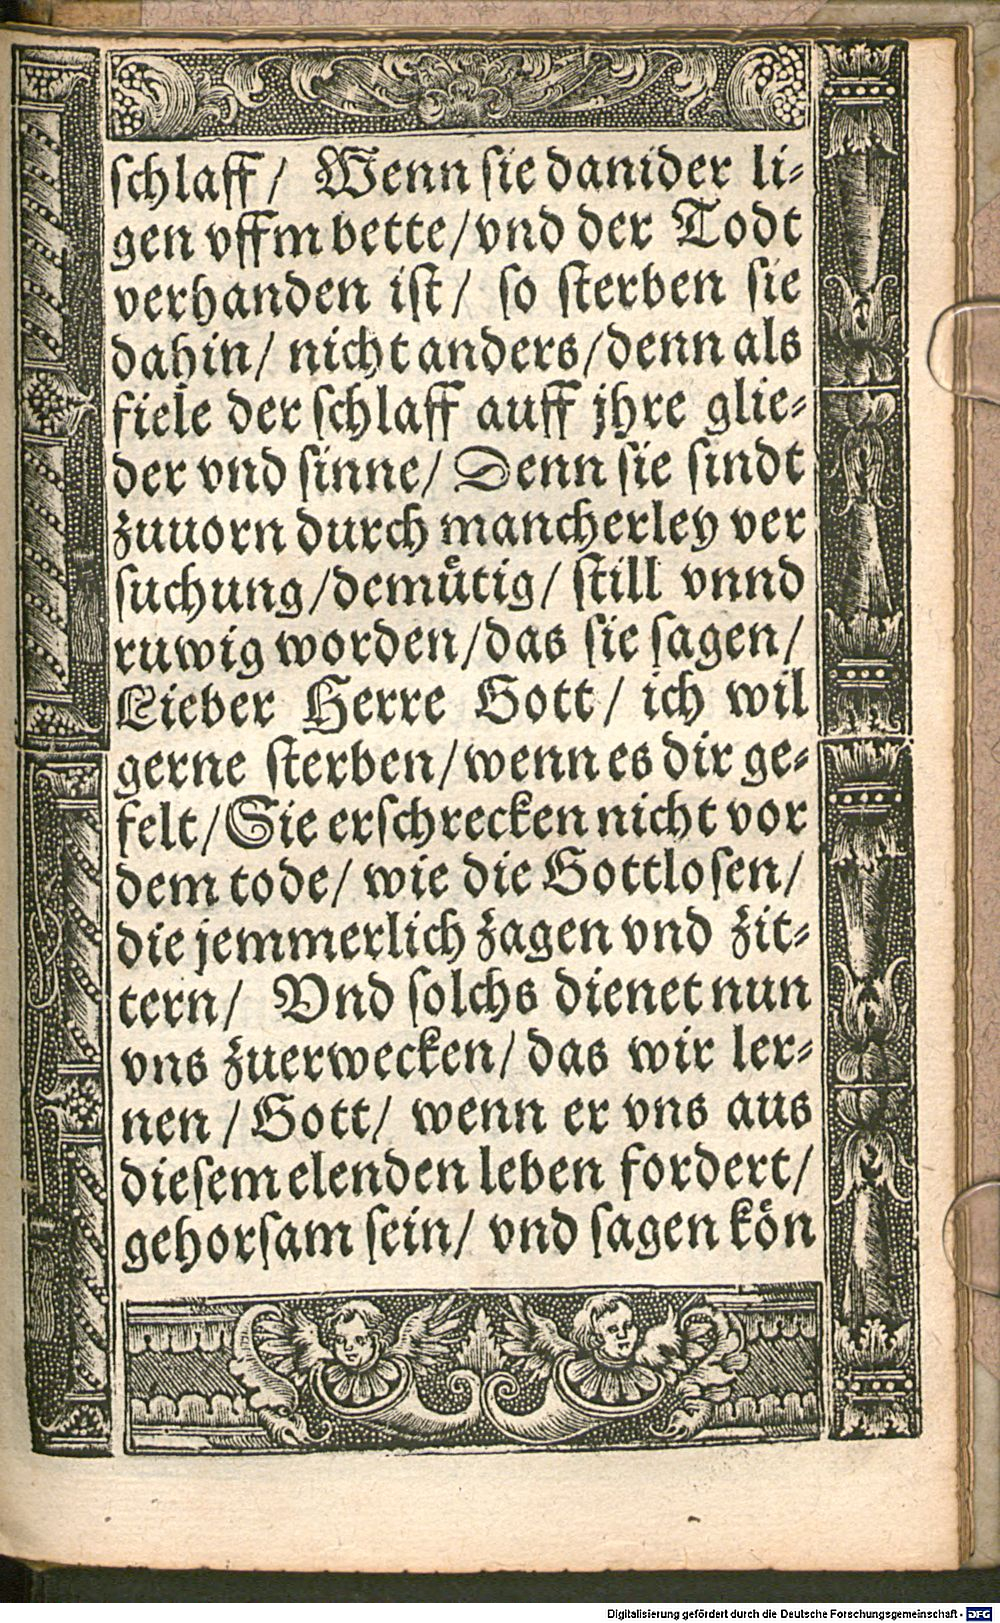 schlaff/ Wenn sie danider li-
gen vffm bette/vnd der Todt
verhanden ist/ so sterben sie
dahin/ nicht anders/denn als
fiele der schlaff auff jhre glie-
der vnd sinne/ Denn sie sindt
zuuorn durch mancherley ver
suchung/demütig/ still vnnd
ruwig worden/das sie sagen/
Lieber Herre Gott/ ich wil
gerne sterben/wenn es dir ge-
felt/Sie erschrecken nicht vor
dem tode/ wie die Gottlosen/
die jemmerlich zagen vnd zit-
tern/ Vnd solchs dienet nun
vns zuerwecken/ das wir ler-
nen /Gott/ wenn er vns aus
diesem elenden leben fordert/
gehorsam sein/ vnd sagen kön
Digitalisierung gefördert durch die Deutsche Forschungsgemeinschaft - DFG